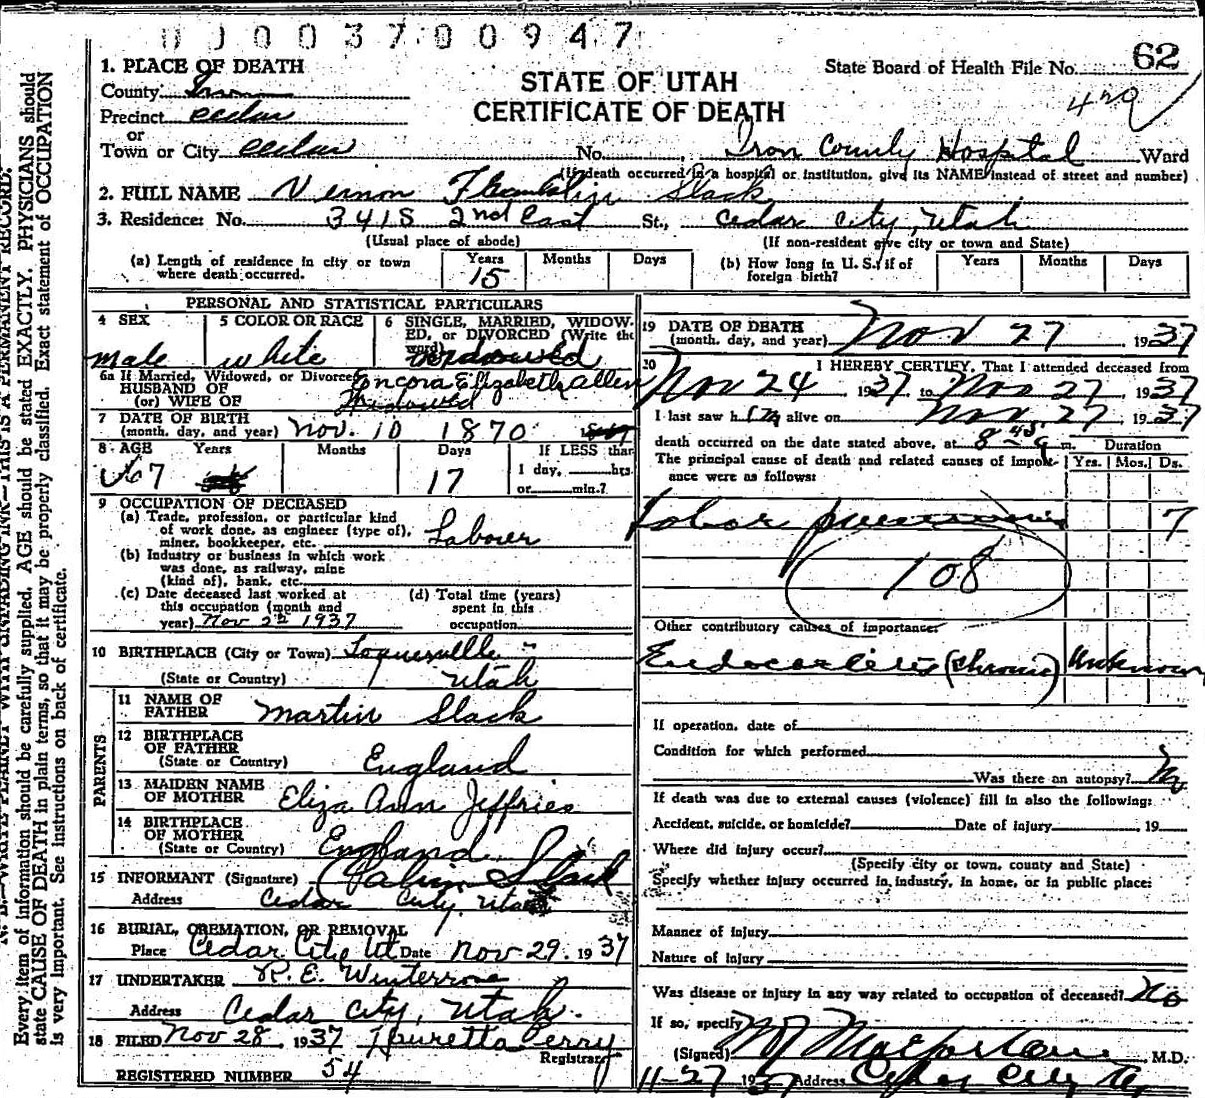 0 0 0 0 3 7 0 0 9 4 7
1. PLACE OF DEATH
County Iron
Precinct Cedar
or
Town or City Cedar
STATE OF UTAH
CERTIFICATE OF DEATH
State Board of Health File No. 62
429
No. Iron County Hospital Ward
(If death occurred in a hospital or institution, give its NAME instead of street and number)
2. FULL NAME Vernon Franklin Slack
3. Residence: No. 341 S 2nd East St., Cedar City, Utah
(Usual place of abode) (If non-resident give city or town and State)
(a) Length of residence in city or town where death occurred. Years 15 Months Days
(b) How long in U. S. if of foreign birth? Years Months Days
PERSONAL AND STATISTICAL PARTICULARS
4 SEX male
5 COLOR OR RACE white
6 SINGLE, MARRIED, WIDOWED, or DIVORCED (Write the word) Widowed
6a If Married, Widowed, or Divorced
HUSBAND OF Encora Elizabeth Allen
(or) WIFE OF Widowed
7 DATE OF BIRTH
(month, day, and year) Nov. 10 1870
8 AGE Years 67 Months Days 17 If LESS than
1 day, hrs.
or min.?
9 OCCUPATION OF DECEASED
(a) Trade, profession, or particular kind of work done, as engineer (type of), miner, bookkeeper, etc. Laborer
(b) Industry or business in which work was done, as railway, mine (kind of), bank, etc.
(c) Date deceased last worked at this occupation (month and year) Nov 22 1937
(d) Total time (years) spent in this occupation
10 BIRTHPLACE (City or Town) Toquerville
(State or Country) Utah
PARENTS
11 NAME OF FATHER Martin Slack
12 BIRTHPLACE OF FATHER
(State or Country) England
13 MAIDEN NAME OF MOTHER Eliza Ann Jeffries
14 BIRTHPLACE OF MOTHER
(State or Country) England
15 INFORMANT (Signature) Slack
Address Cedar City, Utah
16 BURIAL, CREMATION, OR REMOVAL
Place Cedar City Ut Date Nov 29. 1937
17 UNDERTAKER R. E. Winterrose
Address Cedar City, Utah.
18 FILED Nov 28, 1937 Perry
Registrar
REGISTERED NUMBER 54
19 DATE OF DEATH
(month, day, and year) Nov 27 1937
20 I HEREBY CERTIFY, That I attended deceased from
Nov 24, 1937 to Nov 27, 1937
I last saw him alive on Nov 27, 1937
death occurred on the date stated above, at 8 45 a m. Duration
The principal cause of death and related causes of importance were as follows: Yrs. Mos. Ds.
Lobar pneumonia 7
108
Other contributory causes of importance:
Endocarditis (chronic) Unknown
If operation, date of
Condition for which performed
Was there an autopsy? No
If death was due to external causes (violence) fill in also the following:
Accident, suicide, or homicide? Date of injury , 19
Where did injury occur?
(Specify city or town, county and State)
Specify whether injury occurred in industry, in home, or in public place:
Manner of injury
Nature of injury
Was disease or injury in any way related to occupation of deceased? No
If so, specify
(Signed) Macfarlane, M.D.
11-27 1937 Address Cedar City
N. B.—WRITE PLAINLY WITH UNFADING INK—THIS IS A PERMANENT RECORD.
Every item of information should be carefully supplied. AGE should be stated EXACTLY. PHYSICIANS should
state CAUSE OF DEATH in plain terms, so that it may be properly classified. Exact statement of OCCUPATION
is very important. See instructions on back of certificate.